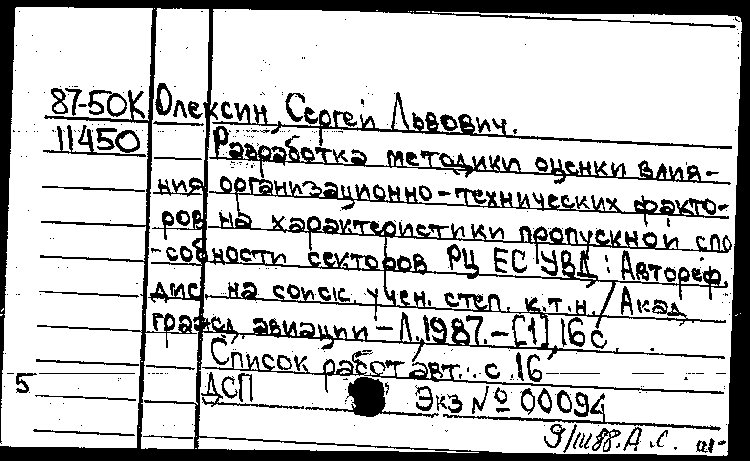 87-50К Олексин, Сергей Львович.
11450 Разработка методики оценки влия-
ния организационно-технических факто-
ров на характеристики пропускной спо
-собности секторов РЦ ЕС УВД : Автореф.
дис. на соиск. учен. степ. к.т.н. / Акад
гражд. авиации - Л., 1987. - [1], 16 с.
Список работ авт.: с. 16
5 ДСП Экз № 00094
9/III 88. А.С.